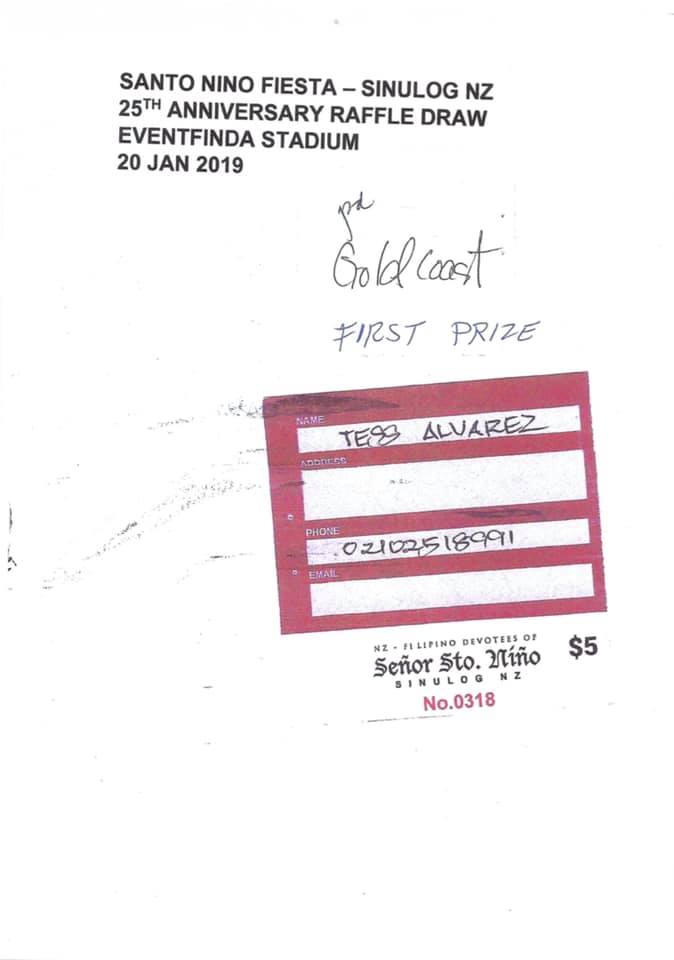 SANTO NINO FIESTA – SINULOG NZ
25TH ANNIVERSARY RAFFLE DRAW
EVENTFINDA STADIUM
20 JAN 2019
pd
Gold Coast
FIRST PRIZE
NAME
TESS ALVAREZ
ADDRESS
PHONE
02102518991
EMAIL
NZ - FILIPINO DEVOTEES OF
Señor Sto. Niño
SINULOG NZ
$5
No.0318